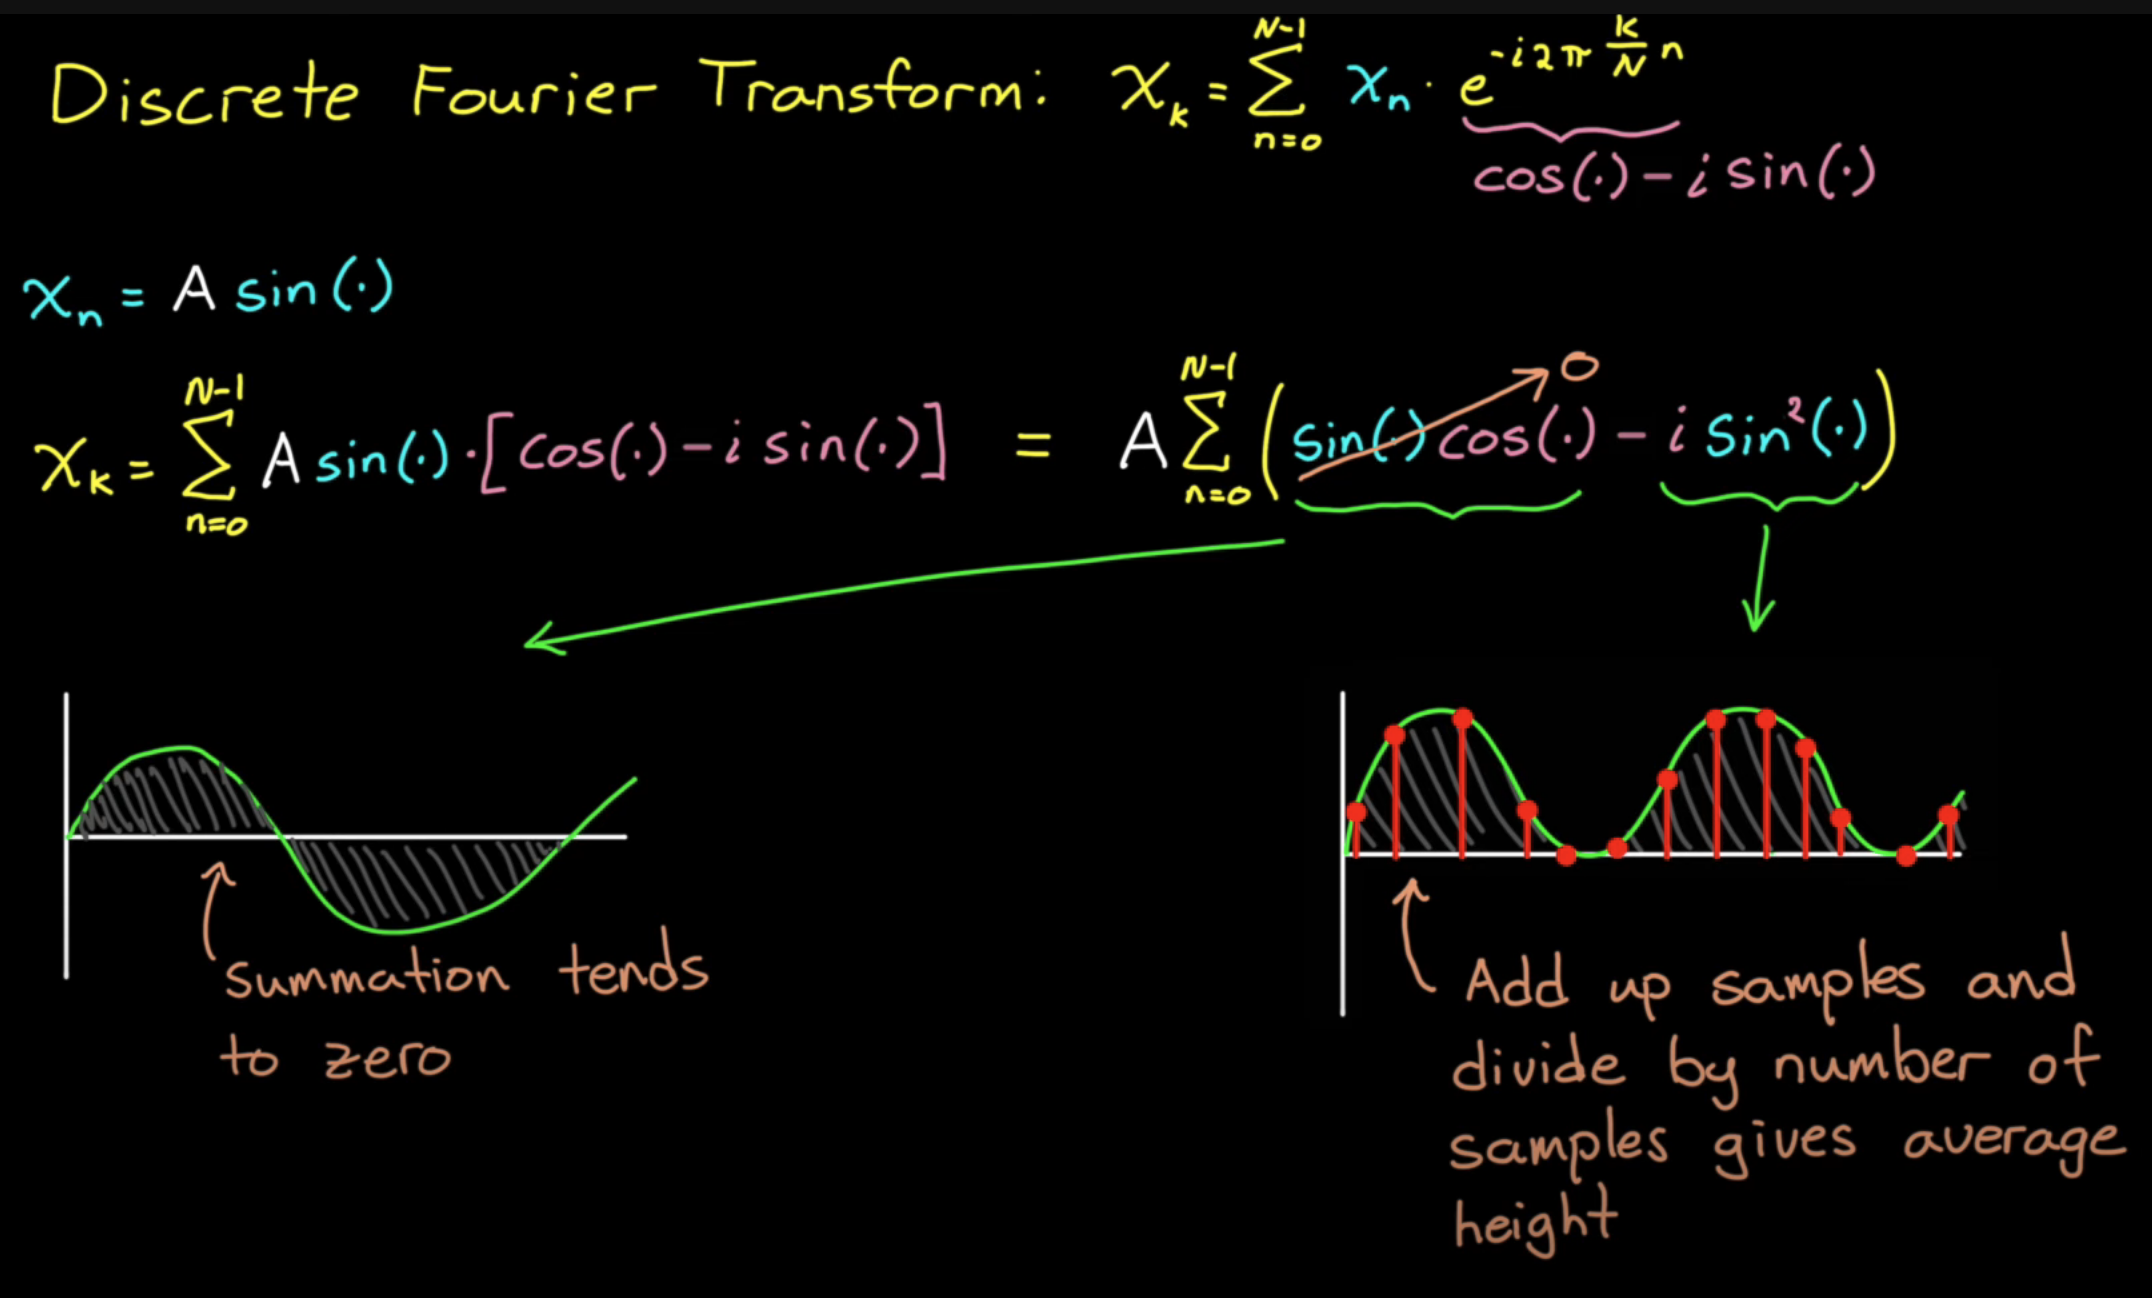 Discrete Fourier Transform: X_k = Σ_{n=0}^{N-1} x_n · e^{-i2π \frac{k}{N} n}
cos(·) - i sin(·)
x_n = A sin(·)
X_k = Σ_{n=0}^{N-1} A sin(·) · [cos(·) - i sin(·)] = A Σ_{n=0}^{N-1} (sin(·) cos(·) - i sin²(·))
0
Summation tends
to zero
Add up samples and
divide by number of
samples gives average
height